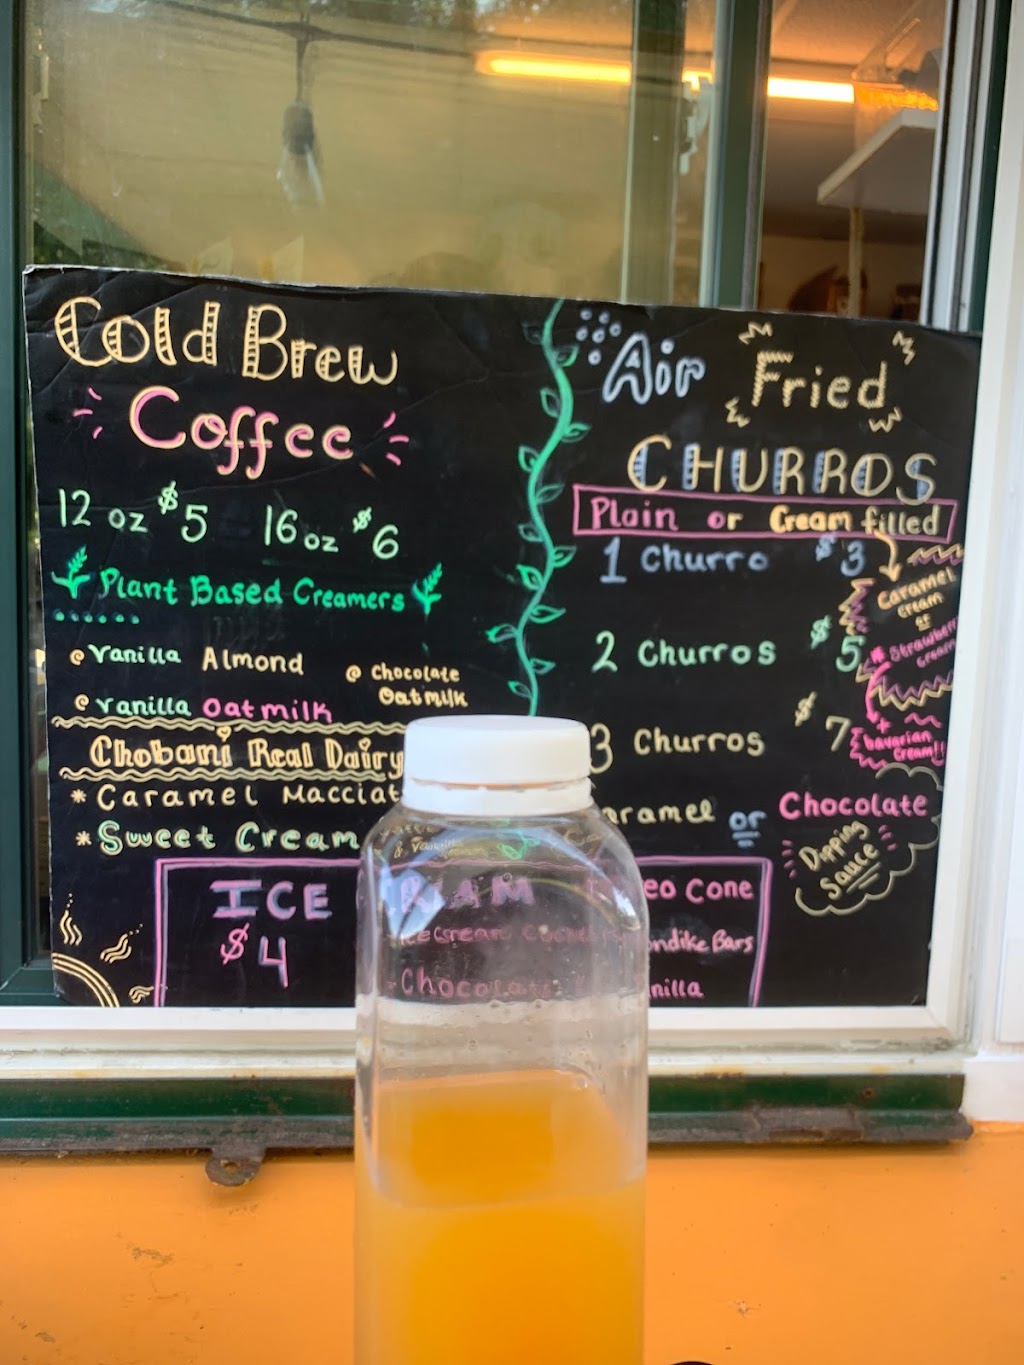 Cold Brew
Coffee
12 oz $5 16 oz $6
Plant Based Creamers
@ Vanilla Almond
@ Chocolate
Oatmilk
@ Vanilla Oatmilk
Chobani Real Dairy
* Caramel Macciat
* Sweet Cream
& Vanilla
ICE
$4
REAM
Chocolate
eo Cone
ondike Bars
nilla
Air Fried
CHURROS
Plain or Cream filled
1 Churro $3
Caramel
cream
or
* Strawberry
cream
2 Churros $5
+
bavarian
cream!!
3 Churros $7
aramel or Chocolate
Dipping
Sauce